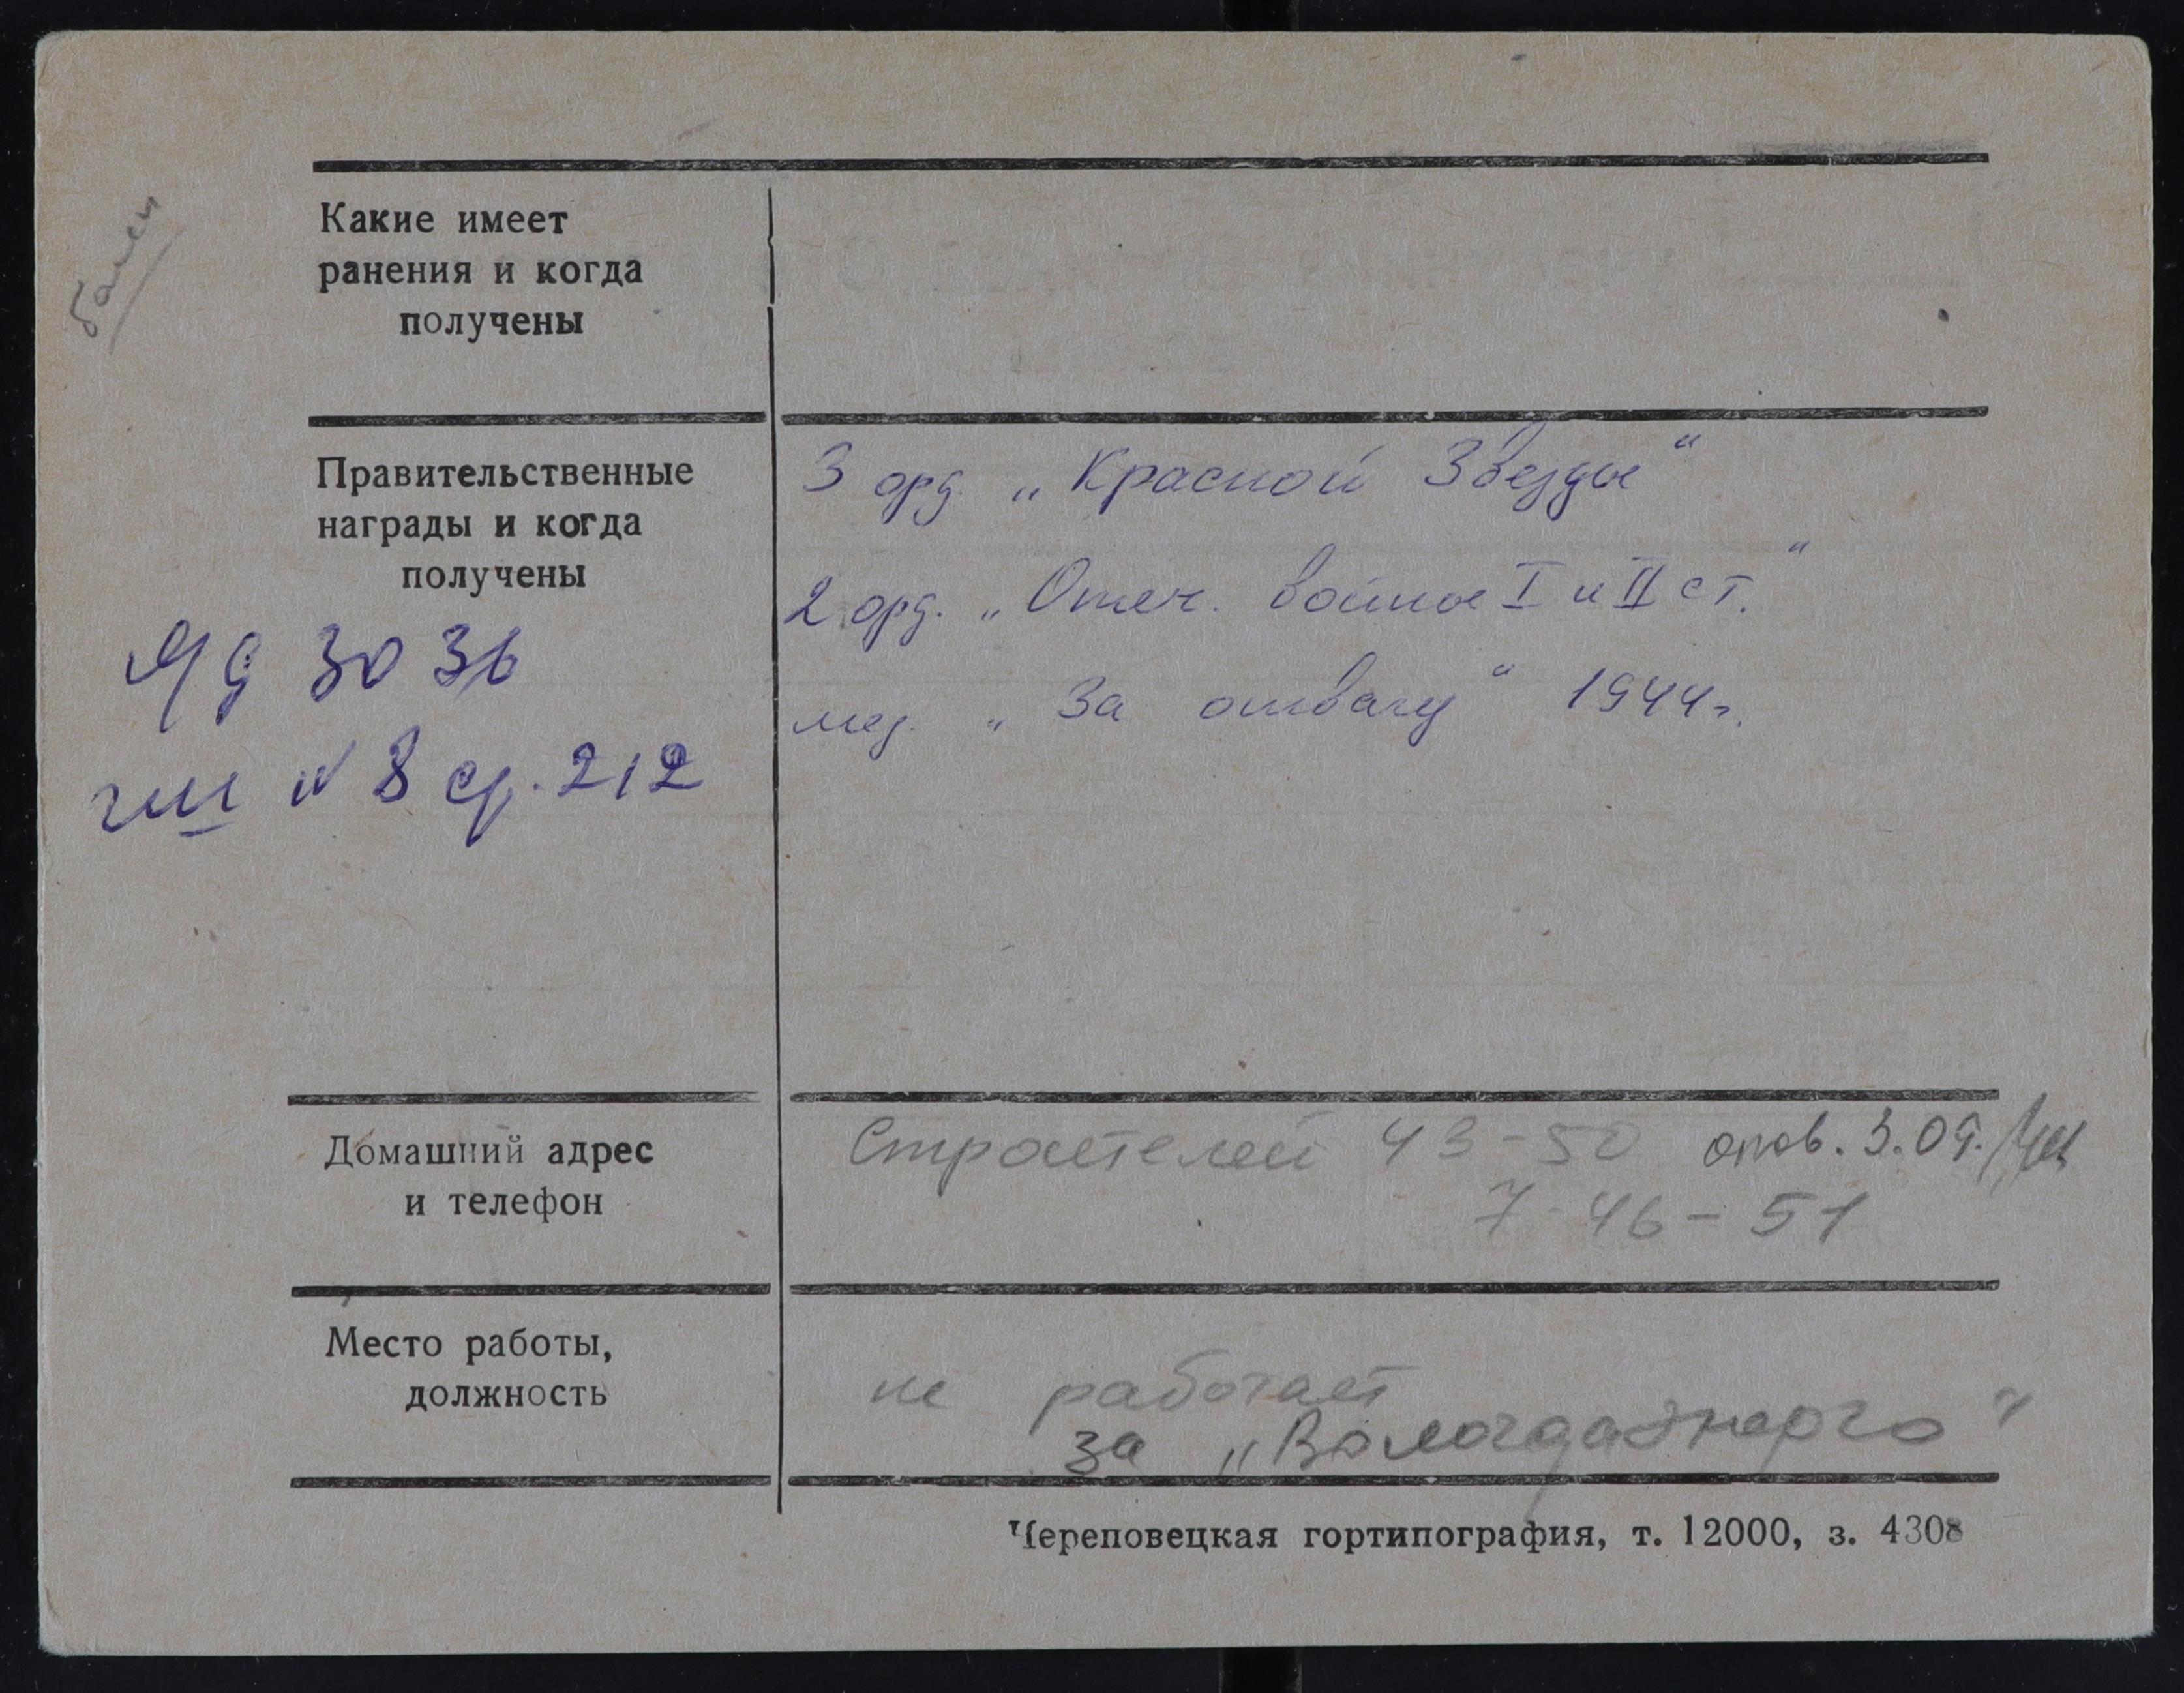 Какие имеет
ранения и когда
получены
Правительственные
награды и когда
получены
3 орд. „Красной Звезды“
2 орд. „Отеч. войны I и II ст.“
мед. „За отвагу“ 1944г.
3036
№ 8 ср. 212
Домашний адрес
и телефон
Строителей 43-50 опов. 3.09.
7-46-51
Место работы,
должность
не работает
за „Вологдаэнерго“
Череповецкая гортипография, т. 12000, з. 4308